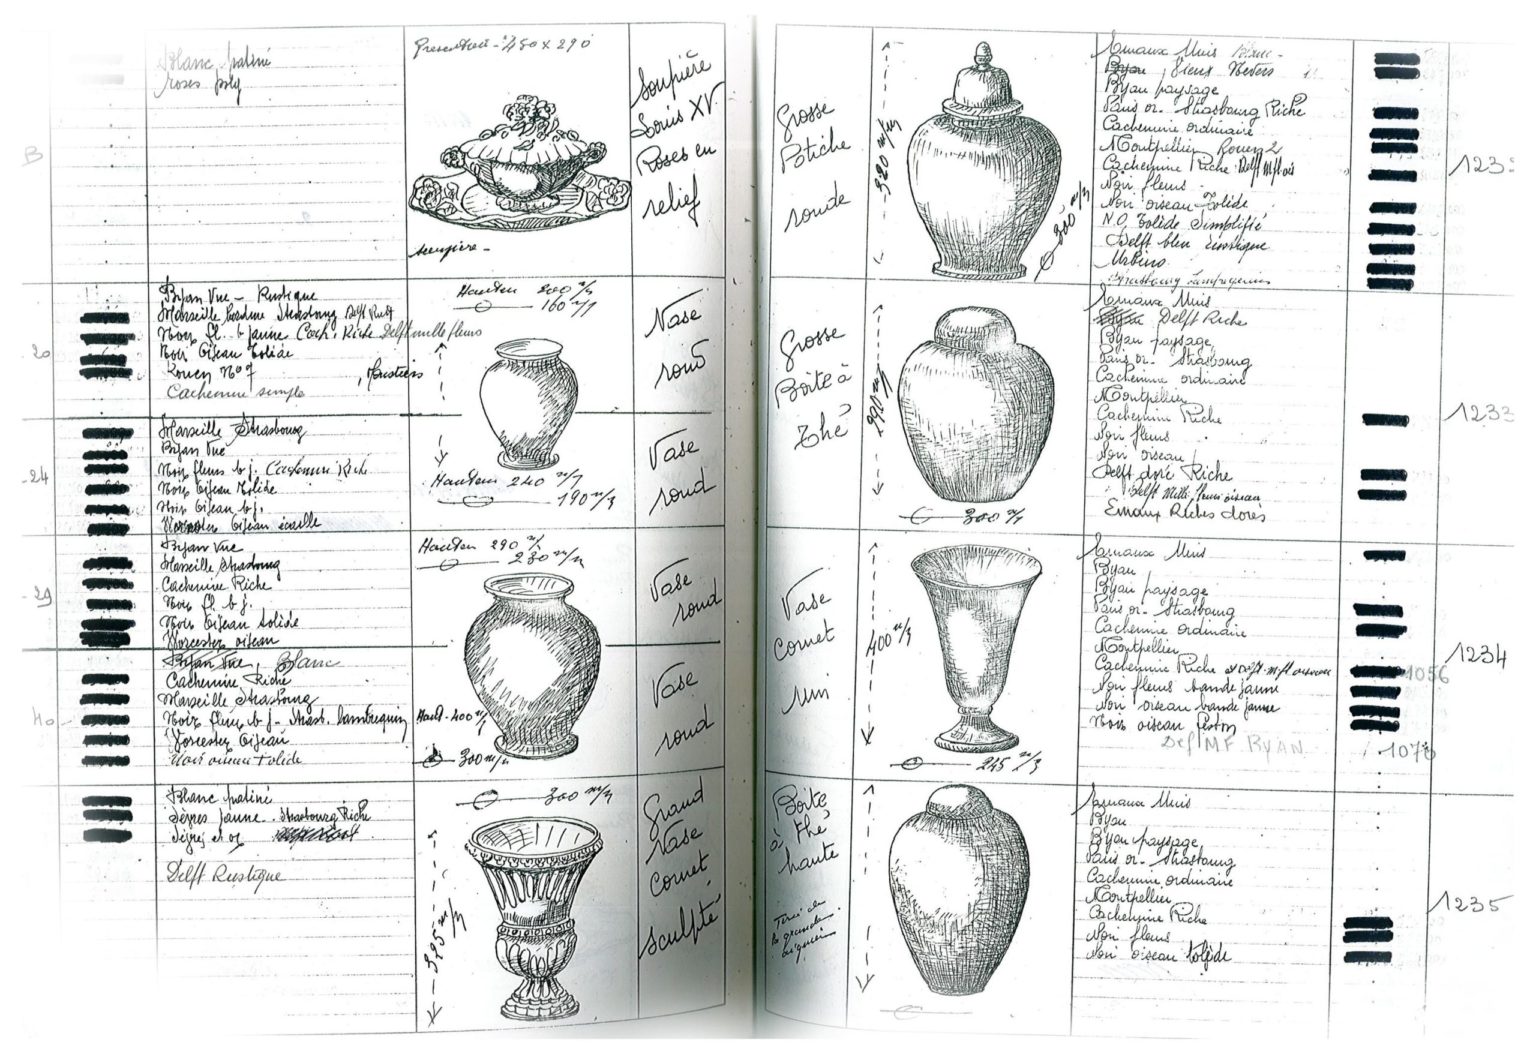 Blanc patiné
roses poly
Présentoir - 450 x 290
soupière -
Soupière
Louis XV
Roses en
relief
B
Byan Vue - Rustique
Marseille Cachemire Strasbourg Delft Rust
Noir fl. b jaune Cach. Riche Delft mille fleurs
Noir Oiseau Tolède
Rouen No 7, Moustiers
Cachemire simple
Hauteur 200 m/m
160 m/m
Vase
rond
20
Marseille Strasbourg
Byan Vue
Noir fleurs b j. Cachemire Riche
Noir Oiseau Tolède
Noir Oiseau b j.
Worcester Oiseau écaille
Hauteur 240 m/m
190 m/m
Vase
rond
24
Byan Vue
Marseille Strasbourg
Cachemire Riche
Noir fl b j.
Noir Oiseau Tolède
Worcester oiseau
Hauteur 290 m/m
230 m/m
Vase
rond
29
Byan Vue, Blanc
Cachemire Riche
Marseille Strasbourg
Noir fleurs b j - Strasb. lambrequin
Worcester Oiseau
Noir oiseau Tolède
Haut - 400 m/m
300 m/m
Vase
rond
40
Blanc patiné
Sèvres jaune - Strasbourg Riche
Sèvres et or
Delft Rustique
300 m/m
395 m/m
Grand
Vase
Cornet
sculpté
Grosse
Potiche
ronde
520 m/m
300 m/m
Emaux Unis
Byan, Vieux Nevers
Byan paysage
Paris or - Strasbourg Riche
Cachemire ordinaire
Montpellier Rouen 2
Cachemire Riche Delft Mfl ois
Noir fleurs
Noir oiseau Tolède
N.O. Tolède Simplifié
Delft bleu rustique
Urbino
Strasbourg
Grosse
Boîte à
Thé
390 m/m
300 m/m
Emaux Unis
Byan Delft Riche
Byan paysage
Paris or - Strasbourg
Cachemire ordinaire
Montpellier
Cachemire Riche
Noir fleurs
Noir oiseau
Delft doré Riche
Delft Mille fleurs oiseau
Emaux Riches dorés
1233
Vase
Cornet
uni
400 m/m
245 m/m
Emaux Unis
Byan
Byan paysage
Paris or - Strasbourg
Cachemire ordinaire
Montpellier
Cachemire Riche
Noir fleurs bande jaune
Noir oiseau bande jaune
Noir oiseau
Delf MF BYAN
1056
1073
1234
Boîte
à thé
haute
Emaux Unis
Byan
Byan paysage
Paris or - Strasbourg
Cachemire ordinaire
Montpellier
Cachemire Riche
Noir fleurs
Noir oiseau Tolède
1235